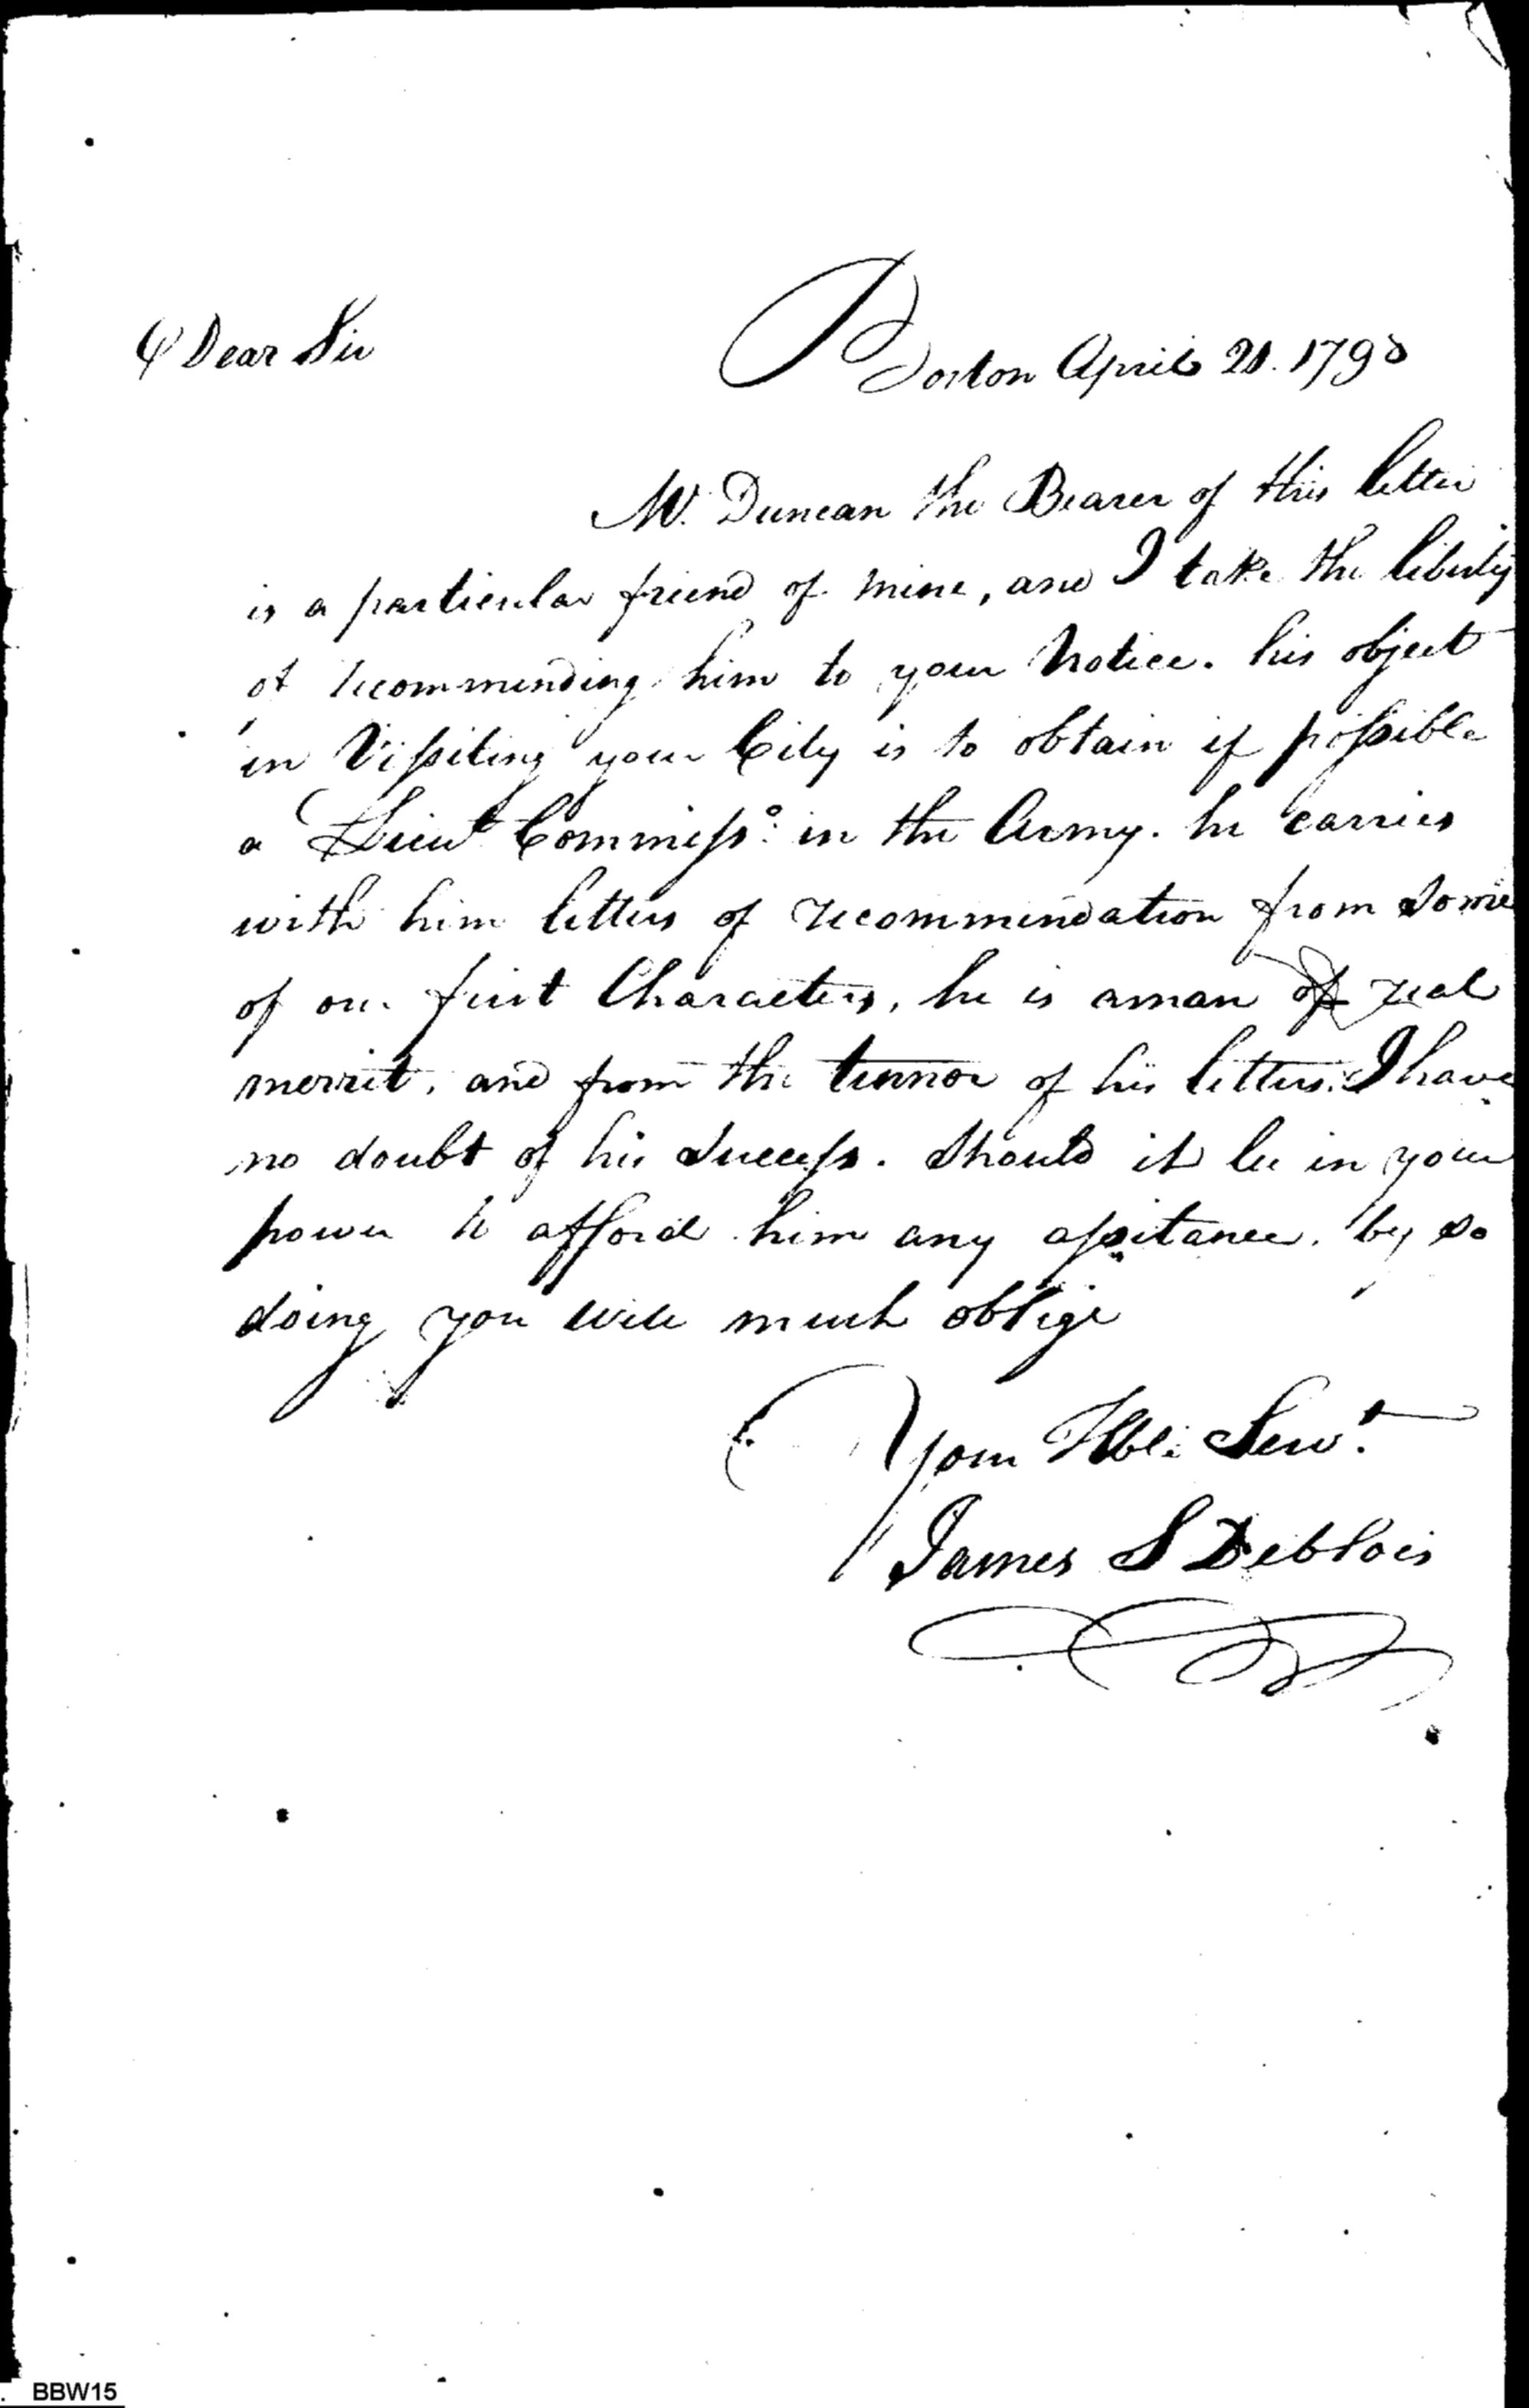 Dear Sir
Boston April 20. 1798
Mr. Duncan the Bearer of this letter
is a particular friend of mine, and I take the liberty
of recommending him to your Notice. his object
in Vissiting your City is to obtain if possible
a Lieut Commisso: in the Army. he carries
with him letters of recommendation from some
of our first Characters, he is a man of real
merrit, and from the tennor of his letters. I have
no doubt of his Success. Should it be in your
power to afford him any assitance, by so
doing you will much oblige
Your Hble. Servt.
James S Deblois
BBW15